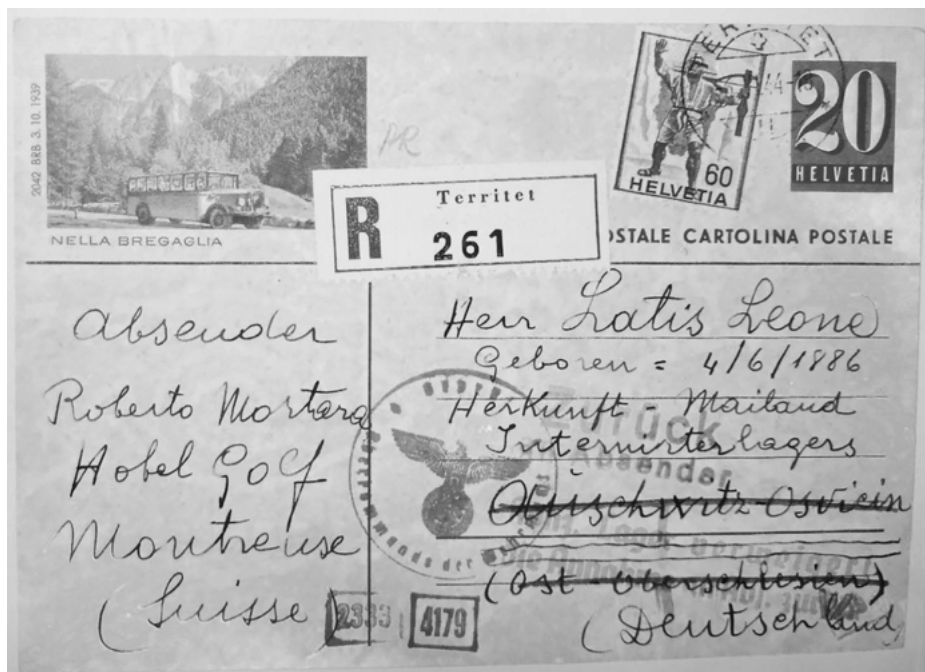 2042 BRB 3. 10. 1939
NELLA BREGAGLIA
R Territet
261
60
HELVETIA
44-
20
HELVETIA
STALE CARTOLINA POSTALE
Absender
Roberto Mortara
Hotel Golf
Montreuse
(Suisse)
Herr Latis Leone
Geboren = 4/6/1886
Herkunft - Mailand
Internirterlagers
Auschwitz-Osvicin
(Ost Oberschlesien)
(Deutschland)
Zurück
Absender
Lager verweigert
die
zurück
der
2333
4179